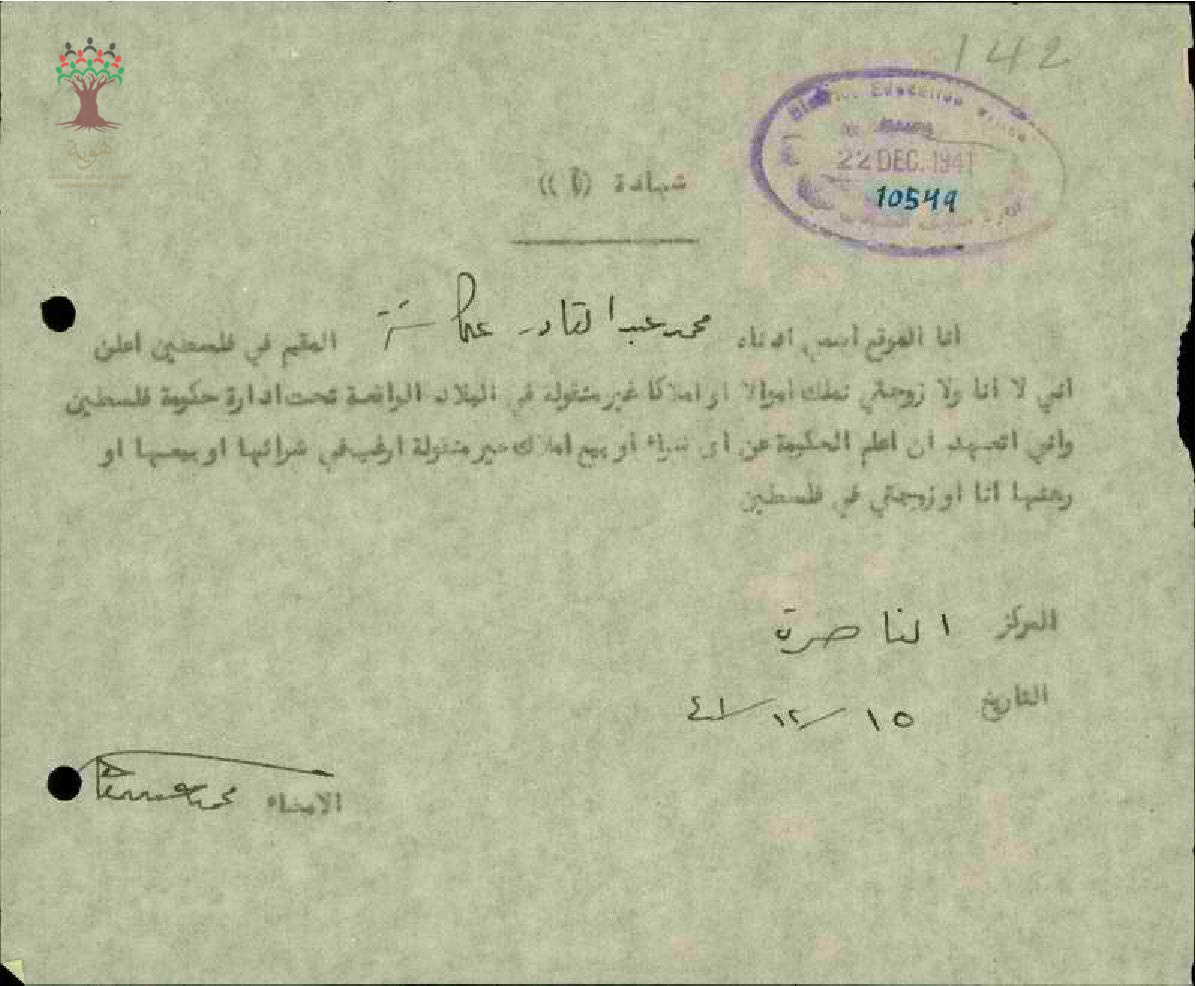 142
District Education Office
22 DEC. 1941
10549
هوية
شهادة ((أ))
انا الموقع اسمي ادناه محمد عبد القادر المقيم في فلسطين اعلن
انني لا انا ولا زوجتي نملك اموالا او املاكا غير منقولة في البلاد الواقعة تحت ادارة حكومة فلسطين
واني اتعهد ان اعلم الحكومة عن اى شراء او بيع املاك غير منقولة ارغب في شرائها او بيعها او
رهنها انا او زوجتي في فلسطين
المركز الناصرة
التاريخ ١٥/١٢/٤١
الامضاء محمد